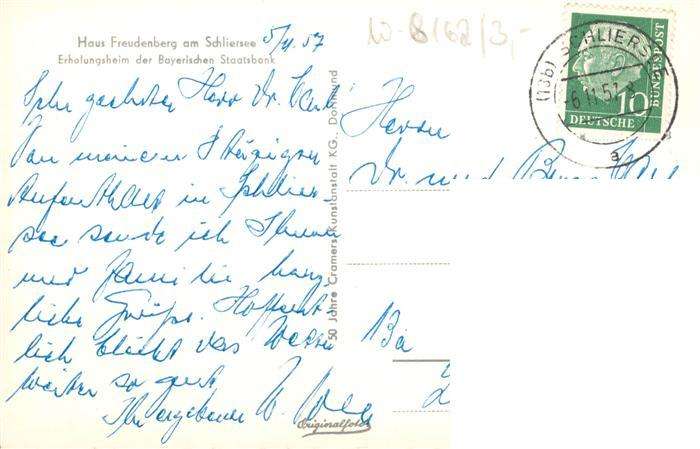 Haus Freudenberg am Schliersee
Erholungsheim der Bayerischen Staatsbank
5/11.57
Sehr geehrter Herr Dr.
Von meinem
Aufenthalt in Schlier-
see sende ich Ihnen
und Familie herz-
liche Grüße. Hoffent-
lich bleibt das Wetter
weiter so gut
Ihr ergebener
50 Jahre Cramers Kunstanstalt KG., Dortmund
Originalfoto
W-8162/3,-
(13b) SCHLIERSEE
-6.11.57
a
10
DEUTSCHE
BUNDESPOST
Herrn
Dr. med
Ba